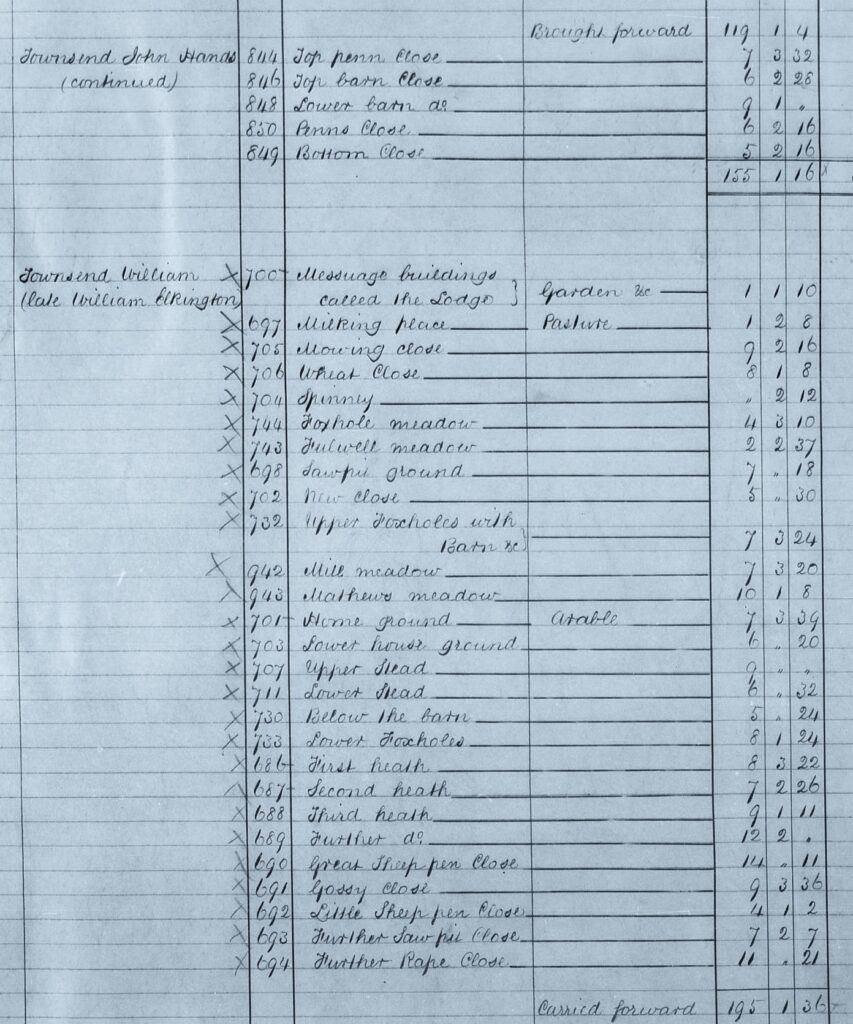 Brought forward 119 1 4
Townsend John Hands 844 Top penn Close 7 3 32
(continued) 846 Top barn Close 6 2 28
848 Lower barn do. 9 1 "
850 Penns Close 6 2 16
849 Bottom Close 5 2 16
155 1 16 x
Townsend William x 700 Messuage buildings
(late William Elkington) called the Lodge } Garden &c 1 1 10
x 697 Milking place Pasture 1 2 8
x 705 Mowing close 9 2 16
x 706 Wheat Close 8 1 8
x 704 Spinney " 2 12
x 744 Foxhole meadow 4 3 10
x 743 Fulwell meadow 2 2 37
x 698 Sawpit ground 7 " 18
x 702 New Close 5 " 30
x 732 Upper Foxholes with
Barn &c } 7 3 24
x 942 Mill meadow 7 3 20
x 943 Mathews meadow 10 1 8
x 701 Home ground Arable 7 3 39
x 703 Lower house ground 6 " 20
x 707 Upper Slead 9 " "
x 711 Lower Slead 6 " 32
x 730 Below the barn 5 " 24
x 733 Lower Foxholes 8 1 24
x 686 First heath 8 3 22
x 687 Second heath 7 2 26
x 688 Third heath 9 1 11
x 689 Further do. 12 2 "
x 690 Great Sheep pen Close 14 " 11
x 691 Gossy Close 9 3 36
x 692 Little Sheep pen Close 4 1 2
x 693 Further Sawpit Close 7 2 7
x 694 Further Rape Close 11 " 21
Carried forward 195 1 36 x